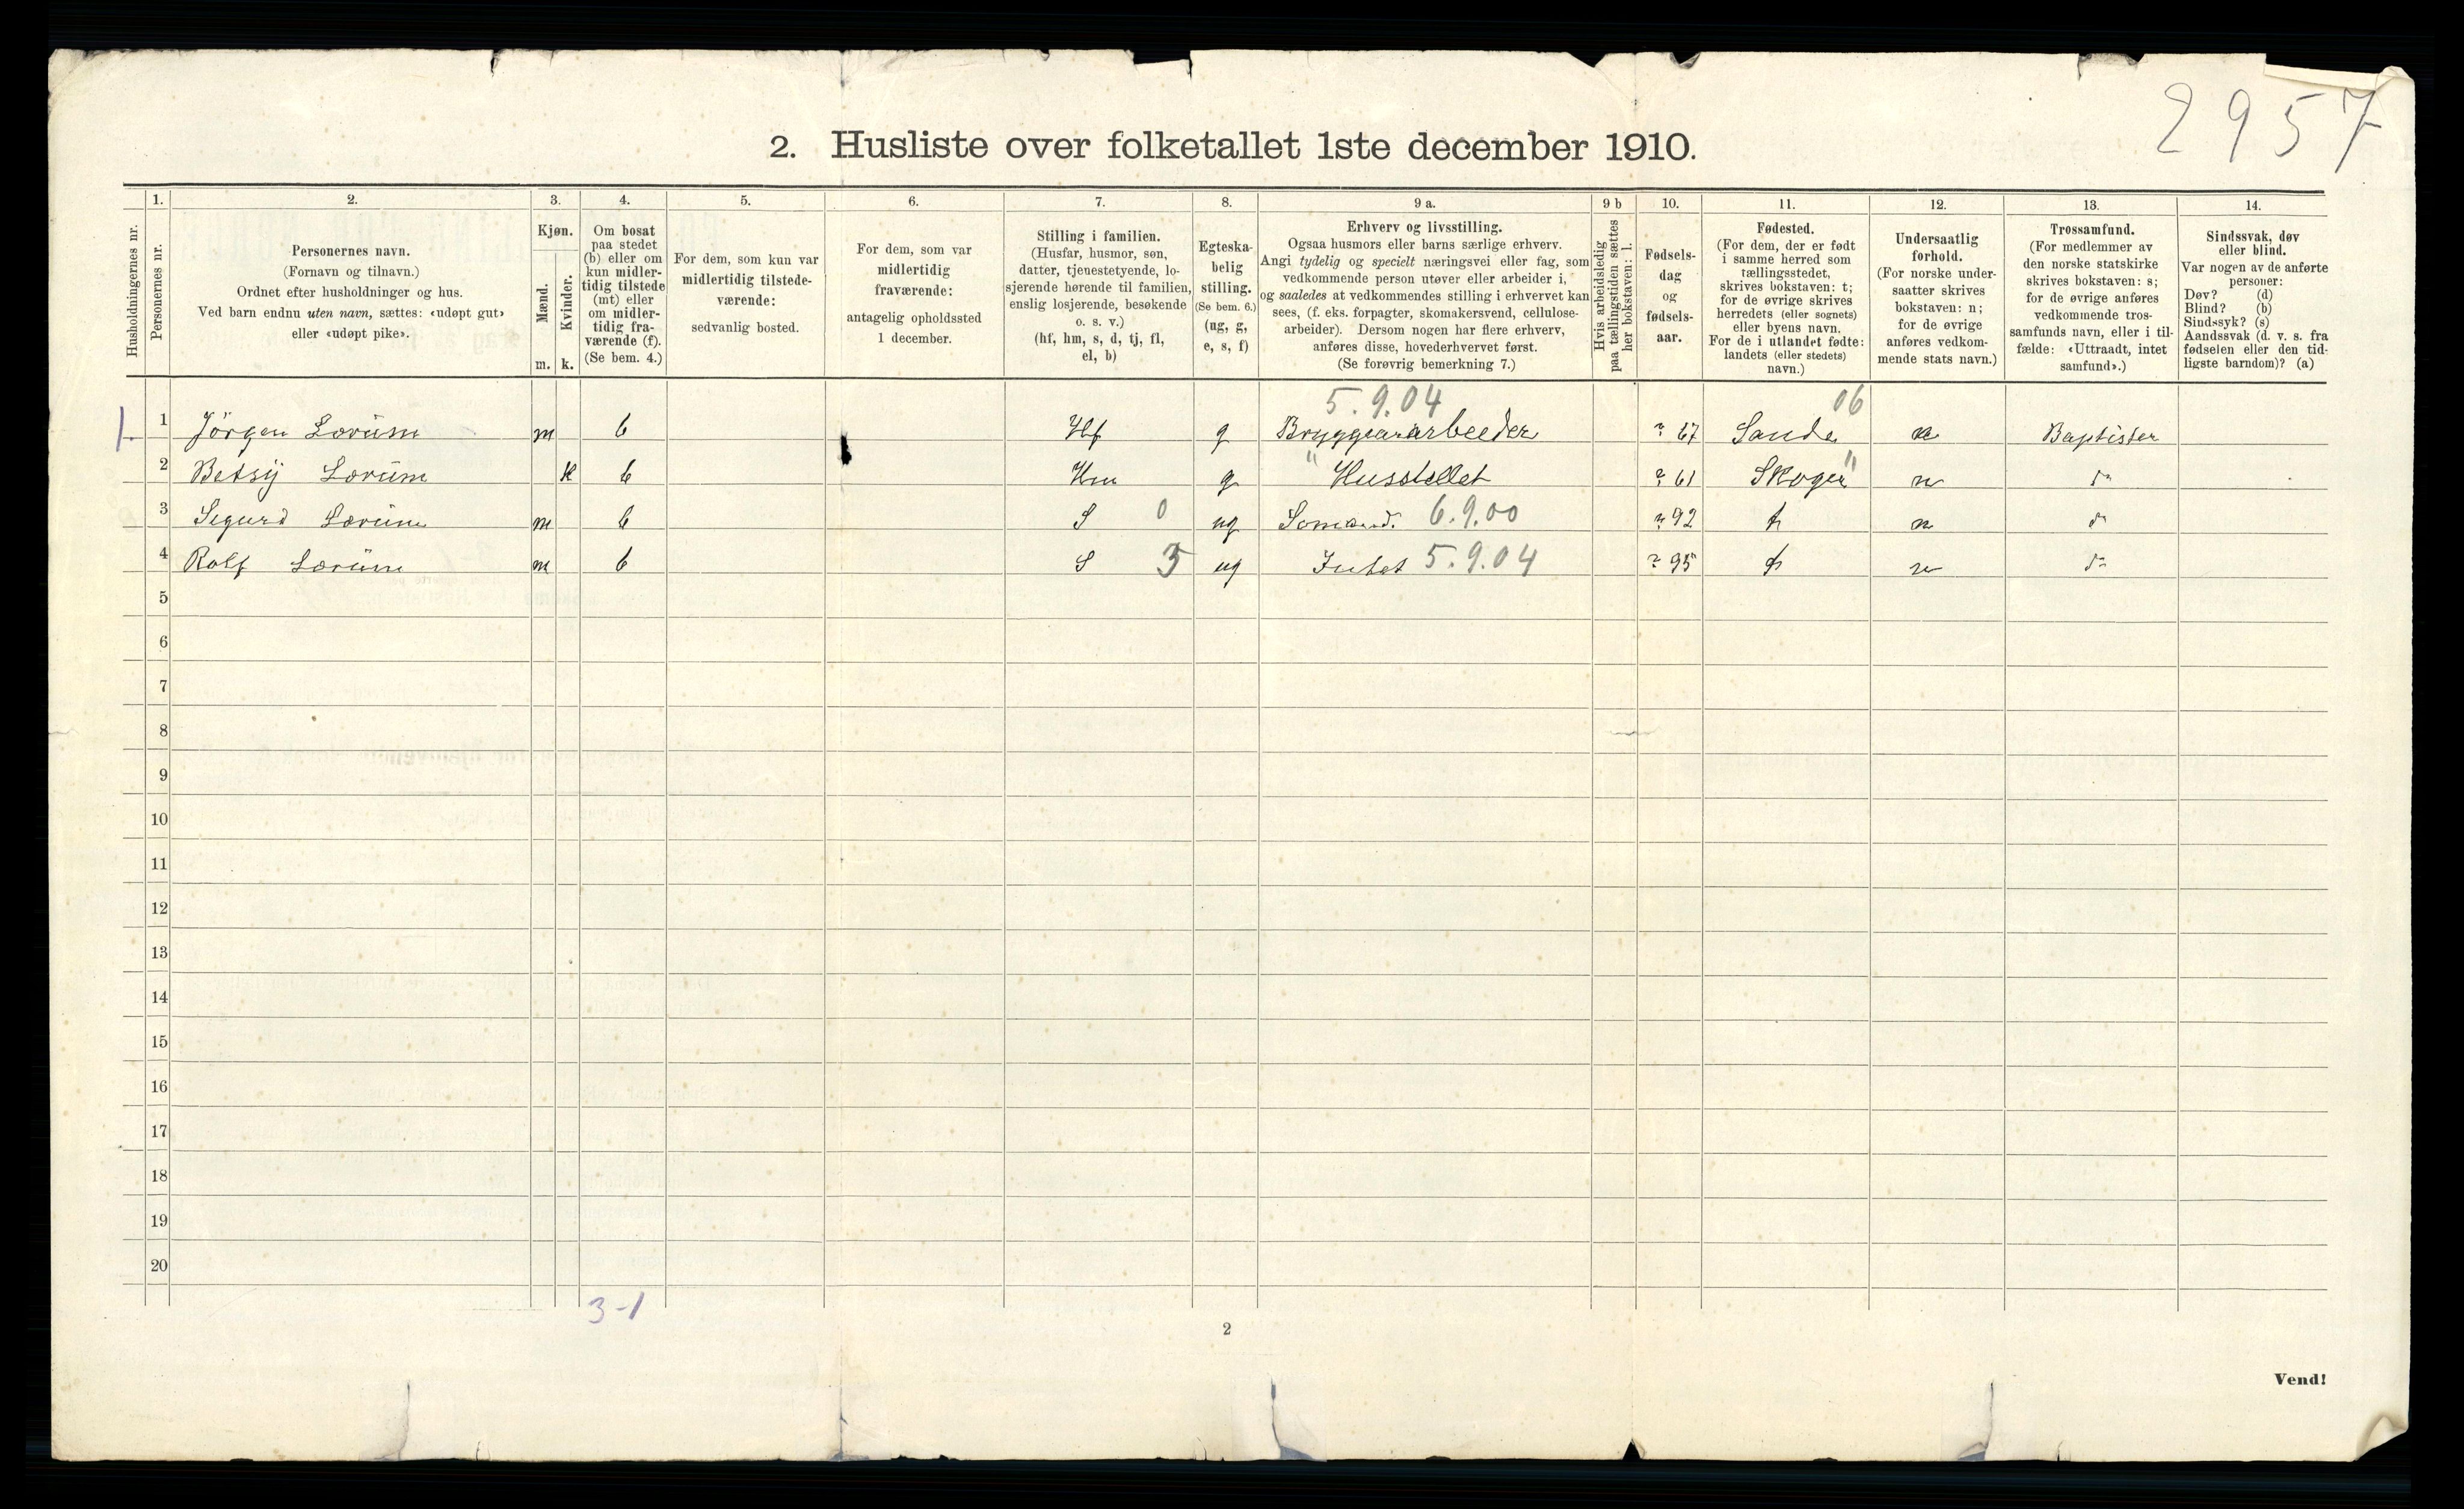 2957
2. Husliste over folketallet 1ste december 1910.
Husholdningernes nr.
1.
Personernes nr.
2.
Personernes navn.
(Fornavn og tilnavn.)
Ordnet efter husholdninger og hus.
Ved barn endnu uten navn, sættes: «udøpt gut»
eller «udøpt pike».
3.
Kjøn.
Mænd.
Kvinder.
m. k.
4.
Om bosat
paa stedet
(b) eller om
kun midler-
tidig tilstede
(mt) eller
om midler-
tidig fra-
værende (f).
(Se bem. 4.)
5.
For dem, som kun var
midlertidig tilstede-
værende:
sedvanlig bosted.
6.
For dem, som var
midlertidig
fraværende:
antagelig opholdssted
1 december.
7.
Stilling i familien.
(Husfar, husmor, søn,
datter, tjenestetyende, lo-
sjerende hørende til familien,
enslig losjerende, besøkende
o. s. v.)
(hf, hm, s, d, tj, fl,
el, b)
8.
Egteska-
belig
stilling.
(Se bem. 6.)
(ug, g,
e, s, f)
9 a.
Erhverv og livsstilling.
Ogsaa husmors eller barns særlige erhverv.
Angi tydelig og specielt næringsvei eller fag, som
vedkommende person utøver eller arbeider i,
og saaledes at vedkommendes stilling i erhvervet kan
sees, (f. eks. forpagter, skomakersvend, cellulose-
arbeider). Dersom nogen har flere erhverv,
anføres disse, hovederhvervet først.
(Se forøvrig bemerkning 7.)
9 b
Hvis arbeidsledig
paa tællingstiden sættes
her bokstaven: l.
10.
Fødsels-
dag
og
fødsels-
aar.
11.
Fødested.
(For dem, der er født
i samme herred som
tællingsstedet,
skrives bokstaven: t;
for de øvrige skrives
herredets (eller sognets)
eller byens navn.
For de i utlandet fødte:
landets (eller stedets)
navn.)
12.
Undersaatlig
forhold.
(For norske under-
saatter skrives
bokstaven: n;
for de øvrige
anføres vedkom-
mende stats navn.)
13.
Trossamfund.
(For medlemmer av
den norske statskirke
skrives bokstaven: s;
for de øvrige anføres
vedkommende tros-
samfunds navn, eller i til-
fælde: «Uttraadt, intet
samfund».)
14.
Sindssvak, døv
eller blind.
Var nogen av de anførte
personer:
Døv? (d)
Blind? (b)
Sindssyk? (s)
Aandssvak (d. v. s. fra
fødselen eller den tid-
ligste barndom)? (a)
5.9.04 06
1. 1 Jörgen Lorüm m b Hf g Bryggeriarbeider 67 Sande n Baptister
2 Betsÿ Lorüm k b Hm g " Husstellet 61 Skoger " n
3 Sigurd Lorüm m b S 0 ug Sömand. 6.9.00 92 n
4 Rolf Lorüm m b S 3 ug Intet 5.9.04 95 n
5
6
7
8
9
10
11
12
13
14
15
16
17
18
19
20
3-1
2
Vend!